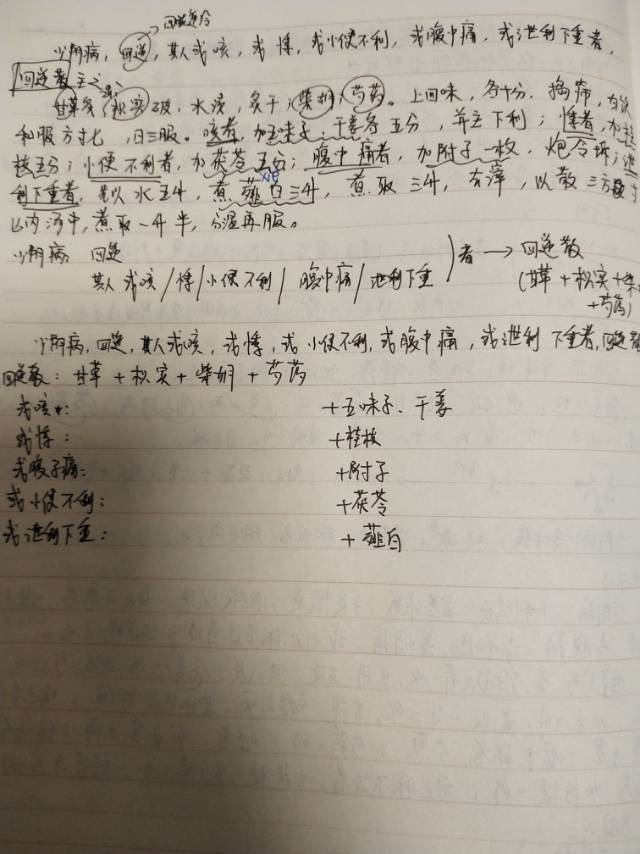 四逆
少阴病，四逆，其人或咳，或悸，或小便不利，或腹中痛，或泄利下重者，
四逆散主之。
甘草炙，枳实破，水渍，炙干，柴胡，芍药。上四味，各十分，捣筛，白饮
和服方寸匕，日三服。咳者，加五味子，干姜各五分，并主下利；悸者，加桂
枝五分；小便不利者，加茯苓五分；腹中痛者，加附子一枚，炮令坼；泄
利下重者，先以水五升，煮薤白三升，煮取三升，去滓，以散三方寸
匕内汤中，煮取一升半，分温再服。
少阴病，四逆
其人或咳/悸/小便不利/腹中痛/泄利下重）者→四逆散
(甘草+枳实+柴
+芍药)
少阴病，四逆，其人或咳，或悸，或小便不利，或腹中痛，或泄利下重者，四逆散
四逆散：甘草+枳实+柴胡+芍药
或咳： +五味子、干姜
或悸： +桂枝
或腹子痛： +附子
或小便不利： +茯苓
或泄利下重： +薤白